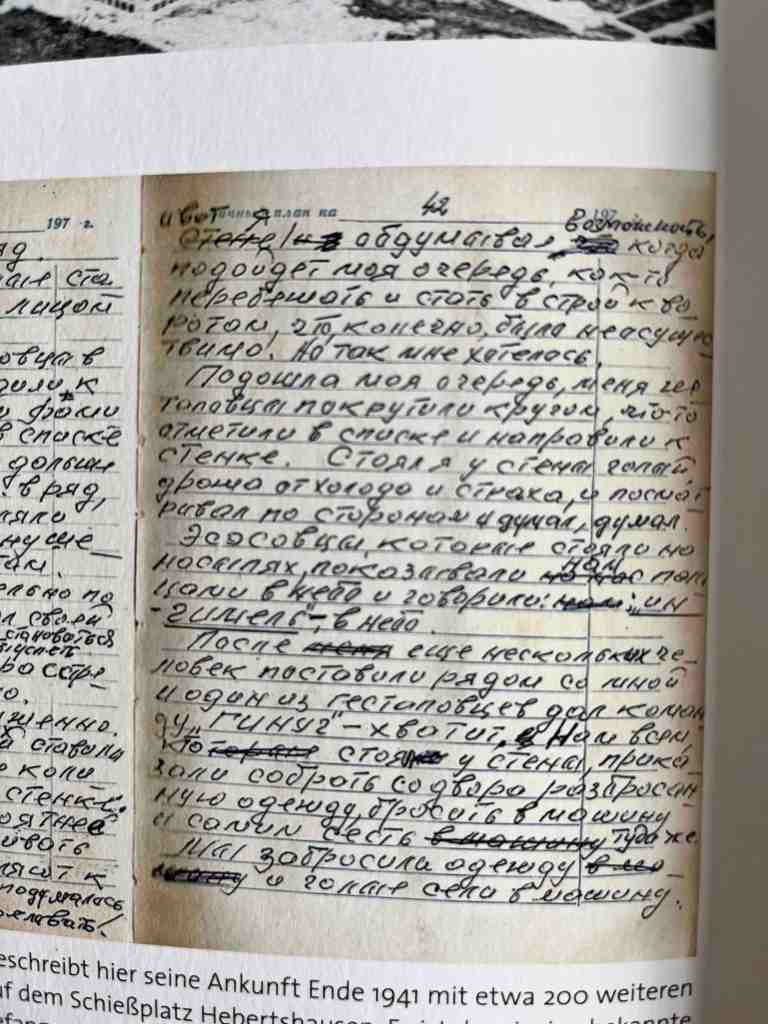 197 г.
яд.
лицом
овца в
дили, к
в списке
дольше
. в ряд,
ляли
там.
ельно по
л своей
становаться
ро сстре-
о.
ешенно.
й ставили
е коли
стенке.
оятнее
ивать
подумалась
42
197
и вот я план на возможность,
обдумывал, когда
подойдет моя очередь, как-то
перебежать и стать в строй к во
ротам, что, конечно, было неосущес
твимо. Но так мне хотелось.
Подошла моя очередь, меня гес
таповцы покрутили кругом, что-то
отметили в списке и направили к
стенке. Стоял я у стены голый,
дрожа от холода и страха, и посмат
ривал по сторонам и думал, думал.
Эсэсовцы, которые стояли на
насыпях, показывали нам паль
цами в небо и говорили: „ин
гимель"-, в небо.
После меня еще несколько че-
ловек поставили рядом со мной
и один из гестаповцев дал коман
ду „Гинуг" – хватит, и Нам всем,
которые стоя у стены, прика
зали собрать со двора разбросан
ную одежду, бросить в машину
и самим сесть в машину туда же.
Мы забросили одежду в ма-
шину и голые сели в машину.
eschreibt hier seine Ankunft Ende 1941 mit etwa 200 weiteren
uf dem Schießplatz Hebertshausen